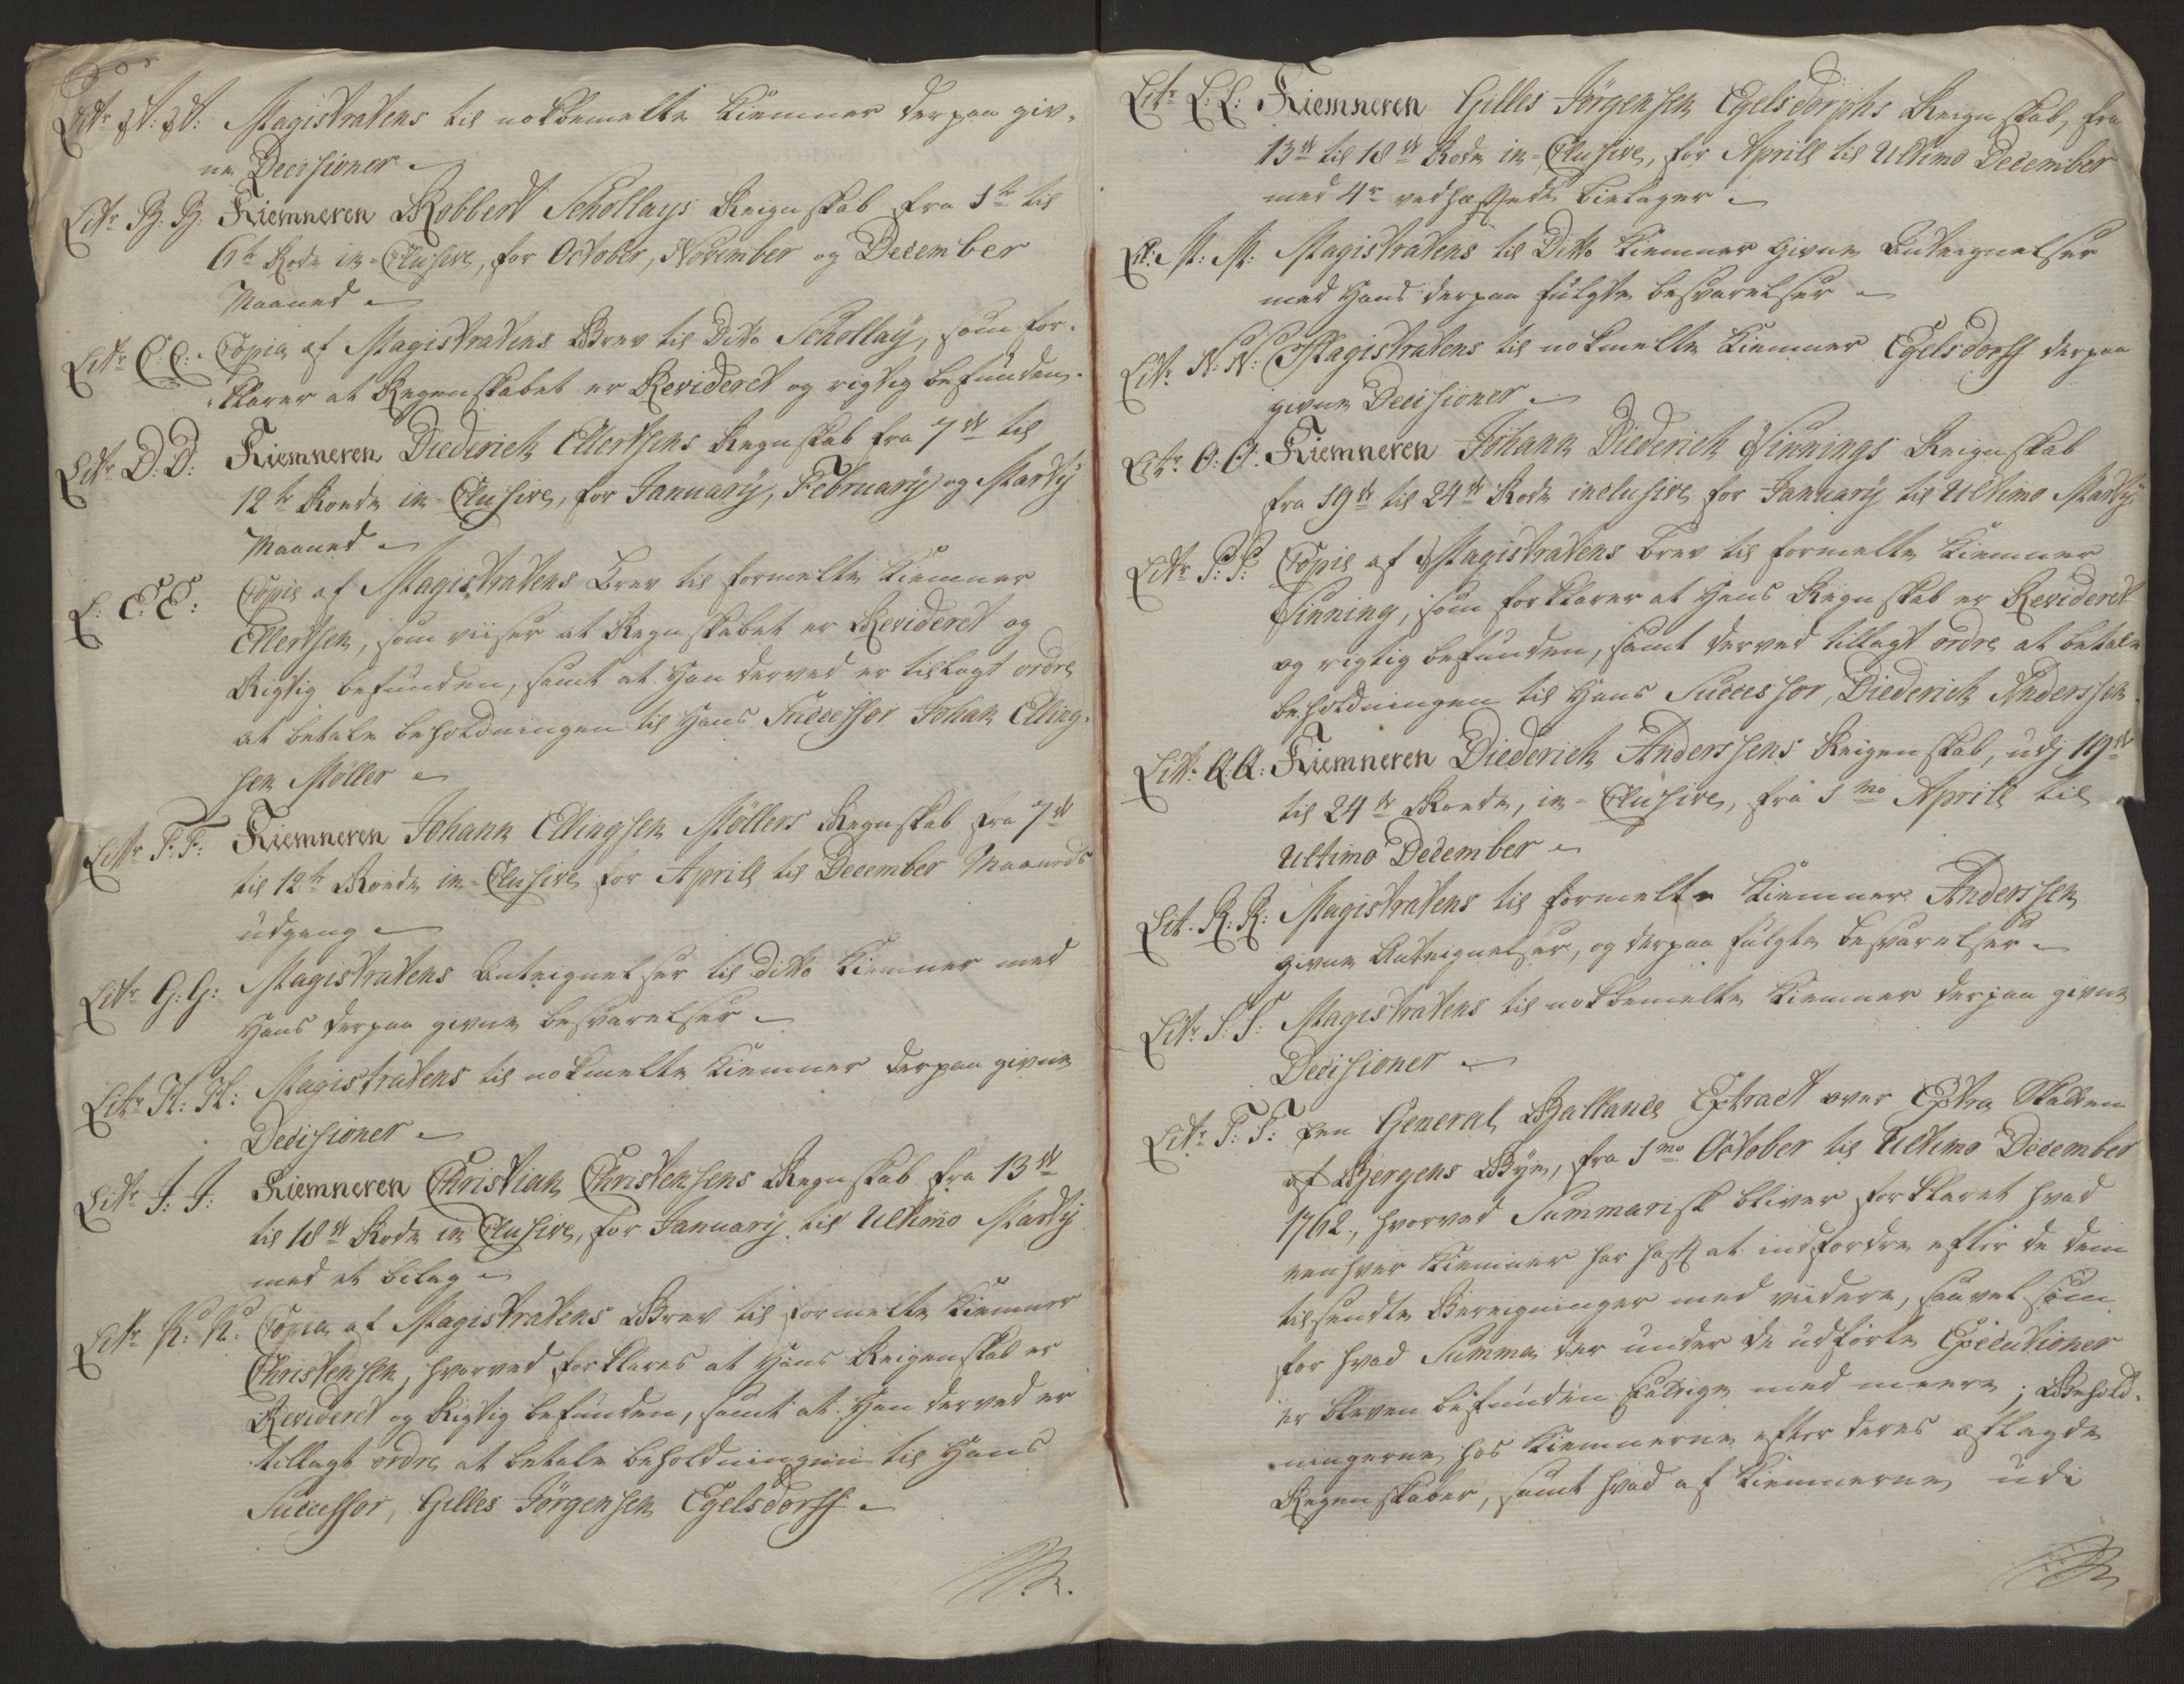 Litr A: A: Magistratens til nokbemelte Kiemner derpaa giv-
ne Decisioner
Litr B: B: Kiemneren Robbert Schollays Reignskab fra 1te til
6te Rode in-Clusive, for October, November og December
Maaned
Litr C: C: Copia af Magistratens Brev til Ditto Schollay, som for-
klarer at Regenskabet er Revideret og rigtig befunden.
Litr D: D: Kiemneren Diederich Ellertsens Regnskab fra 7de til
12te Roede in-Clusive, for January, February og Marty
Maaned
L: E: E: Copie af Magistratens Brev til formelte Kiemner
Ellertsen, som viiser at Regnskabet er Revideret og
Rigtig befunden, samt at Han derved er tillagt ordre
at betale beholdningen til Hans Successor Johan Elling-
sen Möller
Litr F: F: Kiemneren Johann Ellingsen Möllers Regnskab fra 7de
til 12te Roede in-Clusive for Aprill til December Maaneds
udgang
Litr G: G: Magistratens Anteignelser til ditto Kiemner med
Hans derpaa givne besvarelser
Litr H: H: Magistratens til nokmelte Kiemner derpaa givne
Decisioner
Litr J: J: Kiemneren Christian Christensens Regnskab fra 13de
til 18de Rode in Clusive, for January til Ultimo Marty
med et bilag
Litr K: K: Copia af Magistratens Brev til formelte Kiemner
Christensen, hvorved forklares at Hans Reigenskab er
Revideret og Rigtig befunden, samt at Han derved er
tillagt ordre at betale beholdningen til Hans
Successor, Gilles Jörgensen Egelsdorff
Litr L: L: Kiemneren Gilles Jörgensen Egelsdorphs Reignskab, fra
13de til 18de Rode in-Clusive, for Aprill til Ultimo December
med 4re vedhæftede bielager
Lit: M: M: Magistratens til Ditto Kiemner givne Anteignelser
med Hans derpaa fulgte besvarelser
Litr N: N: Magistratens til nokmelte Kiemner Egelsdorff derpaa
givne Decisioner
Litr O: O: Kiemneren Johann Diederich Vinnings Reignskab
fra 19de til 24de Rode inclusive for January til Ultimo Marty
Litr P: P: Copie af Magistratens brev til formelte Kiemner
Vinning, som forklarer at Hans Regnskab er Revideret
og rigtig befunden, samt derved tillagt ordre at betale
beholdningen til Hans Successor, Diederich Anderssen.
Litr: Q: Q: Kiemneren Diederich Anderssens Reigenskab, udj 19de
til 24de Roede, in-Clusive, fra 1mo Aprill til
Ultimo December
Lit. R: R: Magistratens til formelte Kiemner Anderssen
givne Anteignelser, og derpaa fulgte besvarelser
Litr S: S: Magistratens til nokbemelte Kiemner derpaa givne
Decisioner
Litr T: T: Een General Ballance Extract over Extra Skatten
af Bergens Bye, fra 1mo October til Ultimo December
1762., hvorved Summarisk bliver forklaret hvad
eenhver Kiemner har haft at indfordre efter de dem
tilsendte Beregninger med viidere, saavel som
for hvad Summa der under de udförte Executioner
er bleven befunden skyldige med meere; Behold-
ningerne hos Kiemnerne efter deres aflagde
Regenskaber, samt hvad af Kiemnerne udi